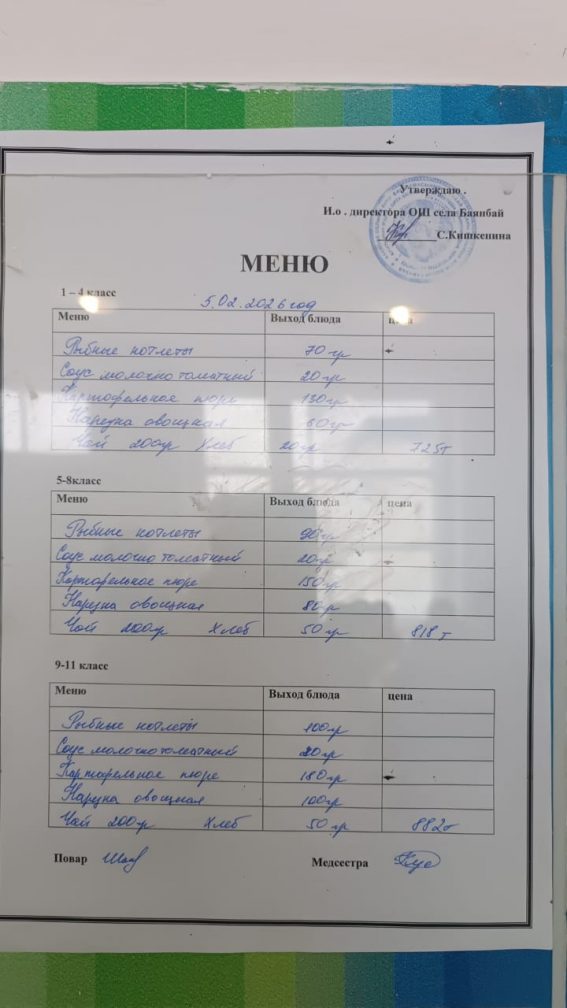 Утверждаю .
И.о . директора ОШ села Баянбай
С.Кишкенина
МЕНЮ
1 – 4 класс
5.02.2026 год
Меню Выход блюда цена
Рыбные котлеты 70 гр
Соус молочно томатный 20 гр
Картофельное пюре 130 гр
Нарезка овощная 60 гр
Чай 200 гр Хлеб 20 гр 725 т
5-8класс
Меню Выход блюда цена
Рыбные котлеты 90 гр
Соус молочно томатный 20 гр
Картофельное пюре 150 гр
Нарезка овощная 80 гр
Чай 200 гр Хлеб 50 гр 818 т
9-11 класс
Меню Выход блюда цена
Рыбные котлеты 100 гр
Соус молочно томатный 20 гр
Картофельное пюре 180 гр
Нарезка овощная 100 гр
Чай 200 гр Хлеб 50 гр 882 т
Повар Медсестра